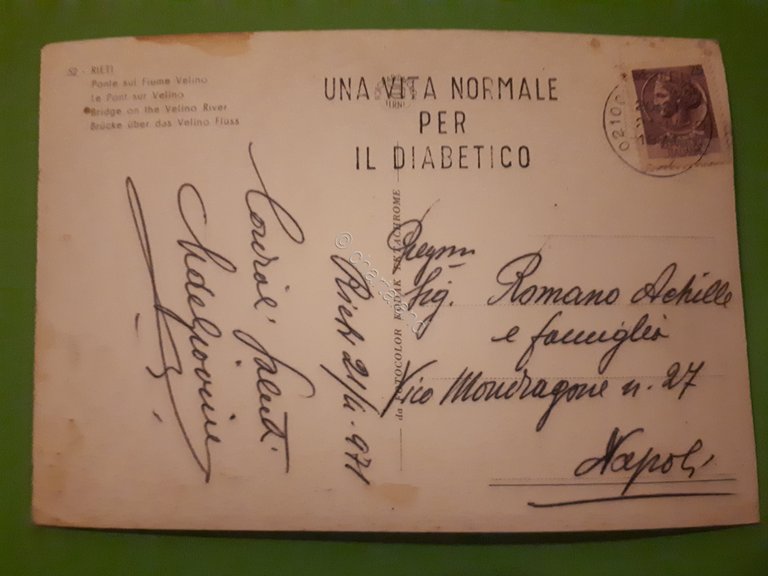 52 - RIETI
Ponte sul Fiume Velino
Le Pont sur Velino
Bridge on the Velino River
Brücke über das Velino Fluss
UNA VITA NORMALE
PER
IL DIABETICO
0210
da FOTOCOLOR KODAK EKTACHROME
Cordial' Saluti
Rieti 21/4-971
Sig. Romano Achille
e famiglia
Vico Mondragone n. 27
Napoli